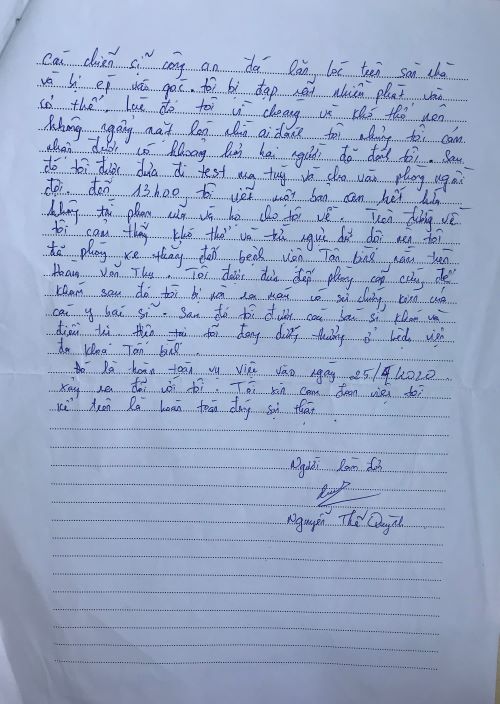 Các chiến sĩ công an đá lăn lóc trên sàn nhà
và bị ép vào góc. tôi bị đạp rất nhiều phát vào
cơ thể. Lúc đó tôi vì choáng và khó thở nên
không ngẩng mặt lên nhìn ai đánh tôi nhưng tôi cảm
nhận được có khoảng hơn hai người đã đánh tôi. Sau
đó tôi được đưa đi test ma tuý và cho vào phòng ngồi
đợi. đến 13h00 tôi viết một bản cam kết
không tái phạm nữa và họ cho tôi về. Trên đường về
tôi cảm thấy khó thở và tức ngực dữ dội nên tôi
đã phóng xe thẳng đến bệnh viện Tân Bình nằm trên
Hoàng Văn Thụ. Tôi được đưa đến phòng cấp cứu, để
khám sau đó tôi bị nôn ra máu có sự chứng kiến của
các y bác sĩ. Sau đó tôi được các bác sĩ khám và
điều trị hiện tại tôi đang dưỡng thương ở bệnh viện
đa khoa Tân Bình.
Đó là toàn vụ việc vào ngày 25/4/2020
xảy ra đối với tôi. Tôi xin cam đoan việc tôi
kể trên là hoàn toàn đúng sự thật.
Người làm đơn
Nguyễn Thế Quỳnh